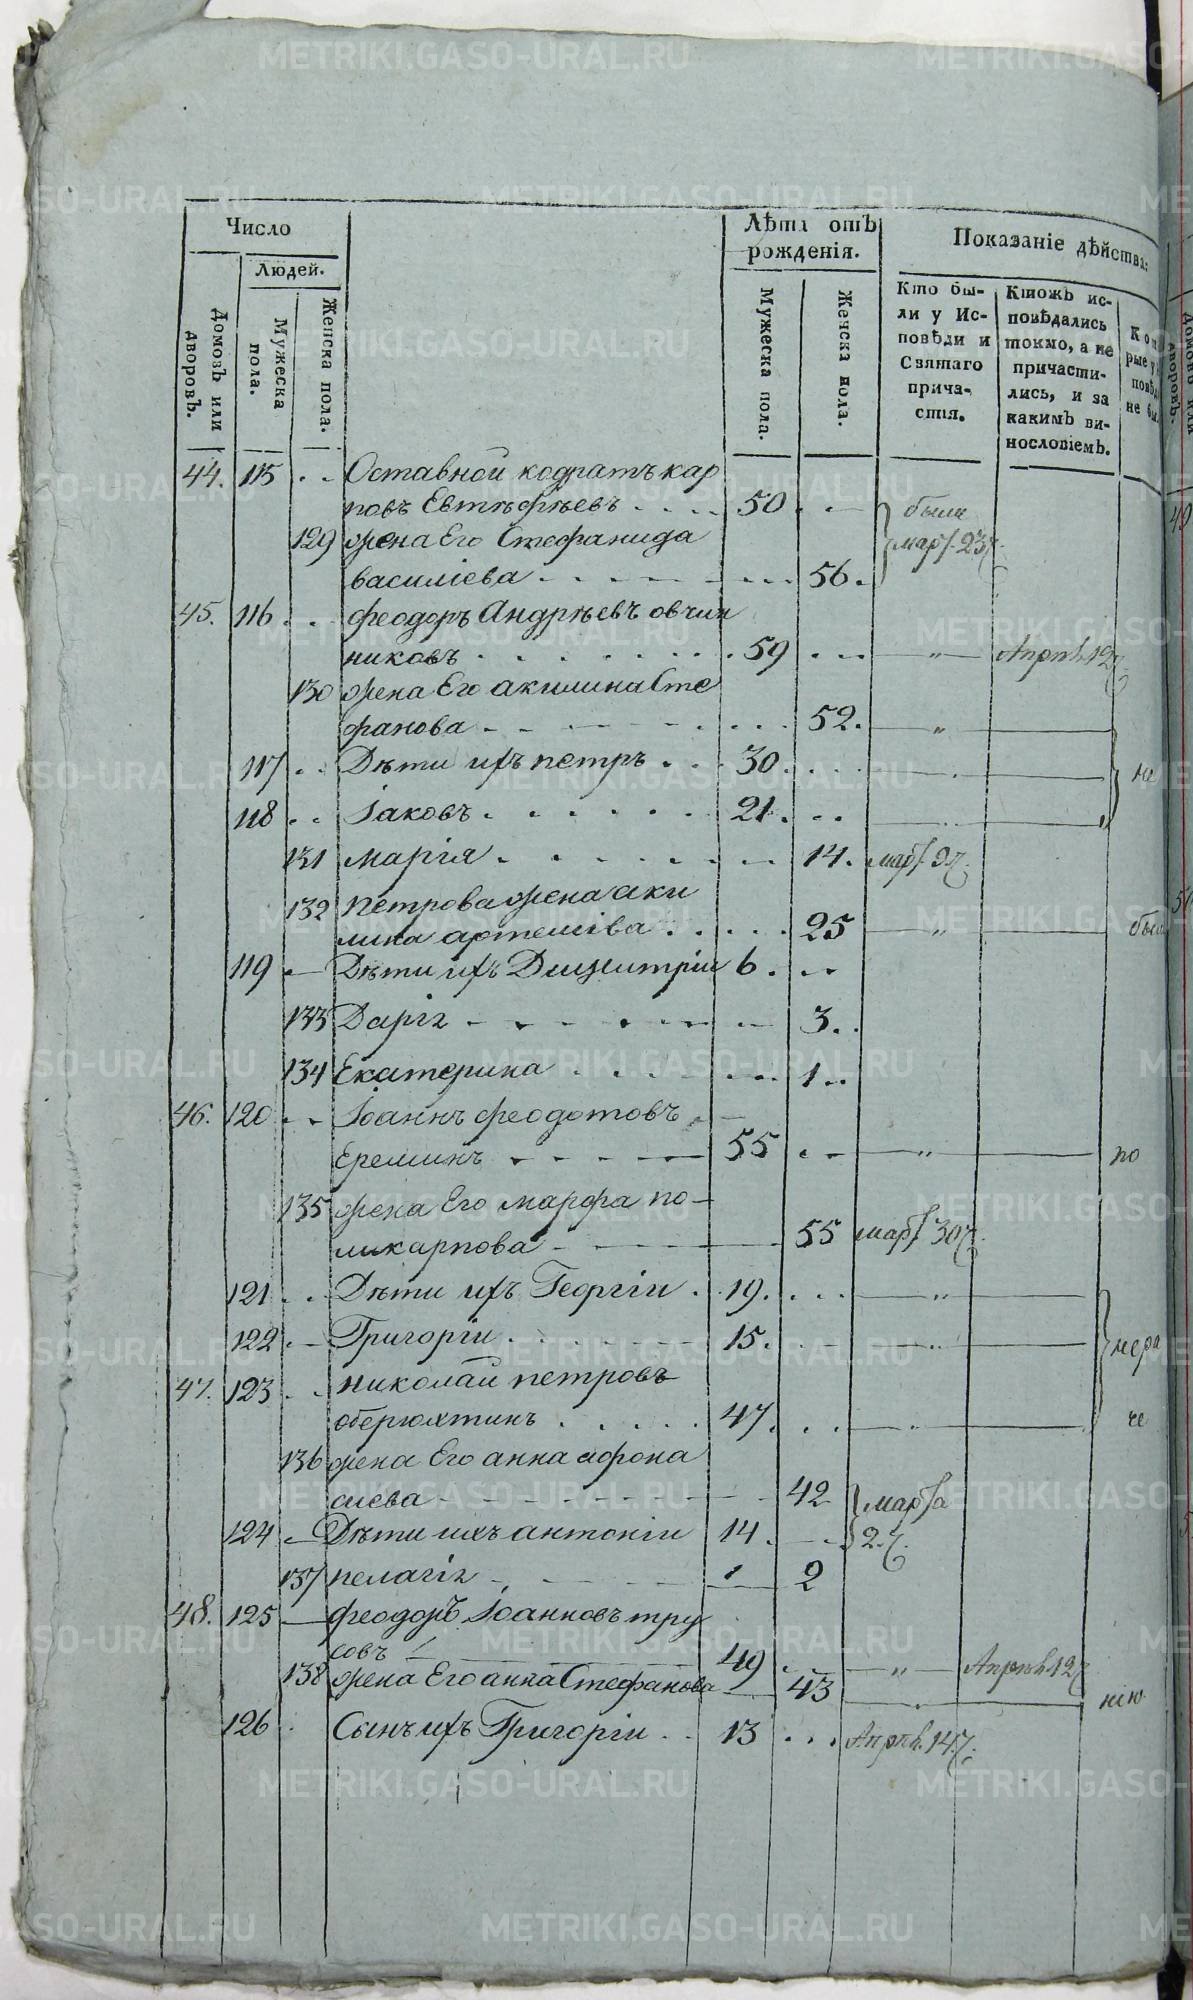 Число
Лѣта отъ рожденія.
Показаніе дѣйства:
Людей.
Домовъ или дворовъ.
Мужеска пола.
Женска пола.
Мужеска пола.
Женска пола.
Кто бы-
ли у Ис-
повѣди и
Святаго
прича-
стія.
Ктожъ ис-
повѣдались
токмо, а не
причасти-
лись, и за
какимъ ви-
нословіемъ.
44. 115 Оставной кодратъ кар
повъ Евтѣфѣевъ 50 были
129 жена Его Стефанида мар. 23
василіева 56.
45. 116 феодоръ Андрѣевъ овчин
никовъ 59 " Апрѣл. 12
130 жена Его акилина Сте
фанова 52. "
117 Дѣти ихъ петръ 30 не
118 Іаковъ 21
131 марія 14. мар. 9
132 петрова жена аки
лина артеміева 25 " бы
119 Дѣти ихъ Димитріи 6
133 Дарія 3
134 Екатерина 1
46. 120 Іоаннъ феодотовъ
Ереминъ 55 " по
135 жена Его марфа по-
ликарпова 55 мар. 30
121 Дѣти ихъ Георгіи 19. "
122 Григоріи 15. " нера
47. 123 николай петровъ
оберюхтинъ 47. " че
136 жена Его анна афона
сиева 42 марта
124 Дѣти ихъ антоніи 14. 2
137 пелагія 2
48. 125 феодоръ Іоанновъ тру
совъ 49 " Апрѣл. 12
138 жена Его анна Стефанова 43 нію
126 Сынъ ихъ Григоріи 13 Апрѣл. 14
METRIKI.GASO-URAL.RU